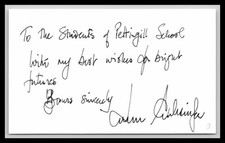 To the Students of Pettingill School
with my best wishes for bright
futures
Yours sincerely